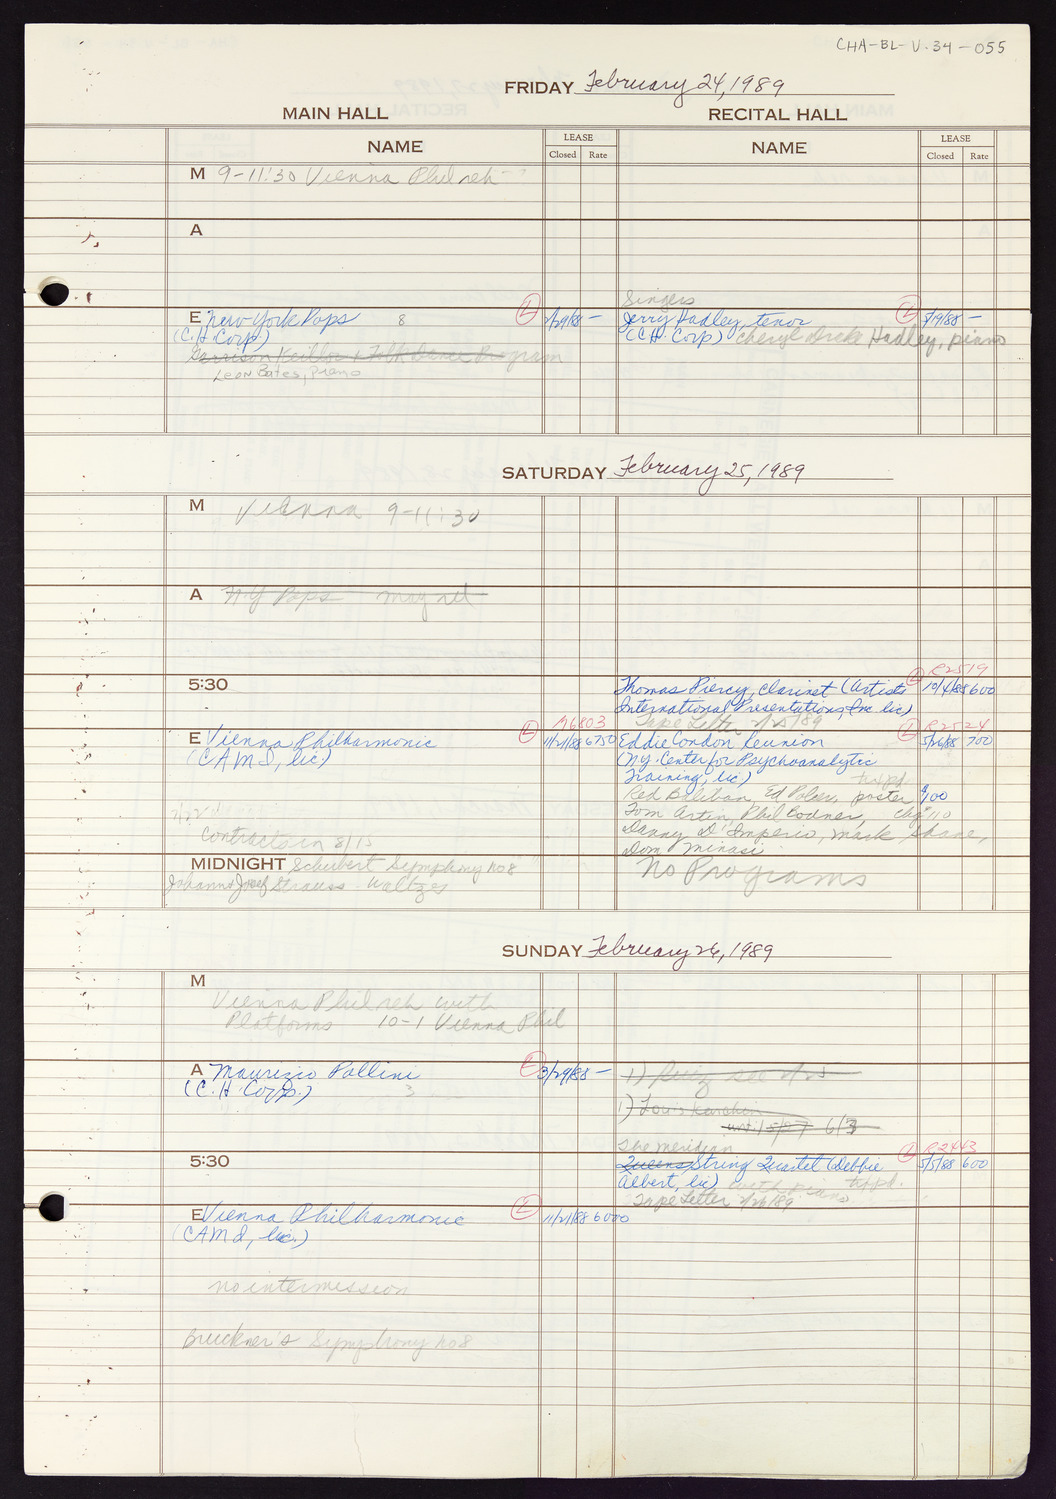 CHA-BL-V-34-055
FRIDAY February 24, 1989
MAIN HALL
RECITAL HALL
NAME
LEASE
Closed Rate
NAME
LEASE
Closed Rate
M 9-11:30 Vienna Phil reh
A
Singers
E New York Pops 8 L 2/29/88 -
Jerry Hadley, tenor L -
(C.H. Corp)
(CCH Corp) Cheryl Drake Hadley, piano
Garrison Keillor & Folk Dance Program
Leon Bates, Piano
SATURDAY February 25, 1989
M Vienna 9-11:30
A NY Pops may rel
5:30
R2519
Thomas Piercy, clarinet (Artists L 10/4/88 600
International Presentations, Inc lic)
Tape Letter 2/25/89
M6803
R2524
E Vienna Philharmonic L 11/21/88 6750
Eddie Condon Reunion L 5/26/88 700
(CAMI, lic)
(N.Y. Center for Psychoanalytic
Training, lic)
Red Balaban, Ed Polcer, poster $100
Tom Artin, Phil Bodner, chg 110
Danny D'Imperio, Mark Shane,
Dom Minasi
Contracts in 8/15
MIDNIGHT Schubert Symphony no 8
Johann & Josef Strauss - Waltzes
No Programs
SUNDAY February 26, 1989
M
Vienna Phil reh with
Platforms 10-1 Vienna Phil
A Maurizio Pollini L 3/29/88 -
(C.H. Corp.) 3
1) Ruiz see
1) Louis Karchin
6/3
The Meridian
R2443
5:30
Queens String Quartet (Debbie L 5/5/88 600
Albert, lic) with piano
Tape Letter 2/26/89
E Vienna Philharmonic L 11/21/88 6000
(CAMI, lic.)
no intermission
Bruckner's Symphony no 8